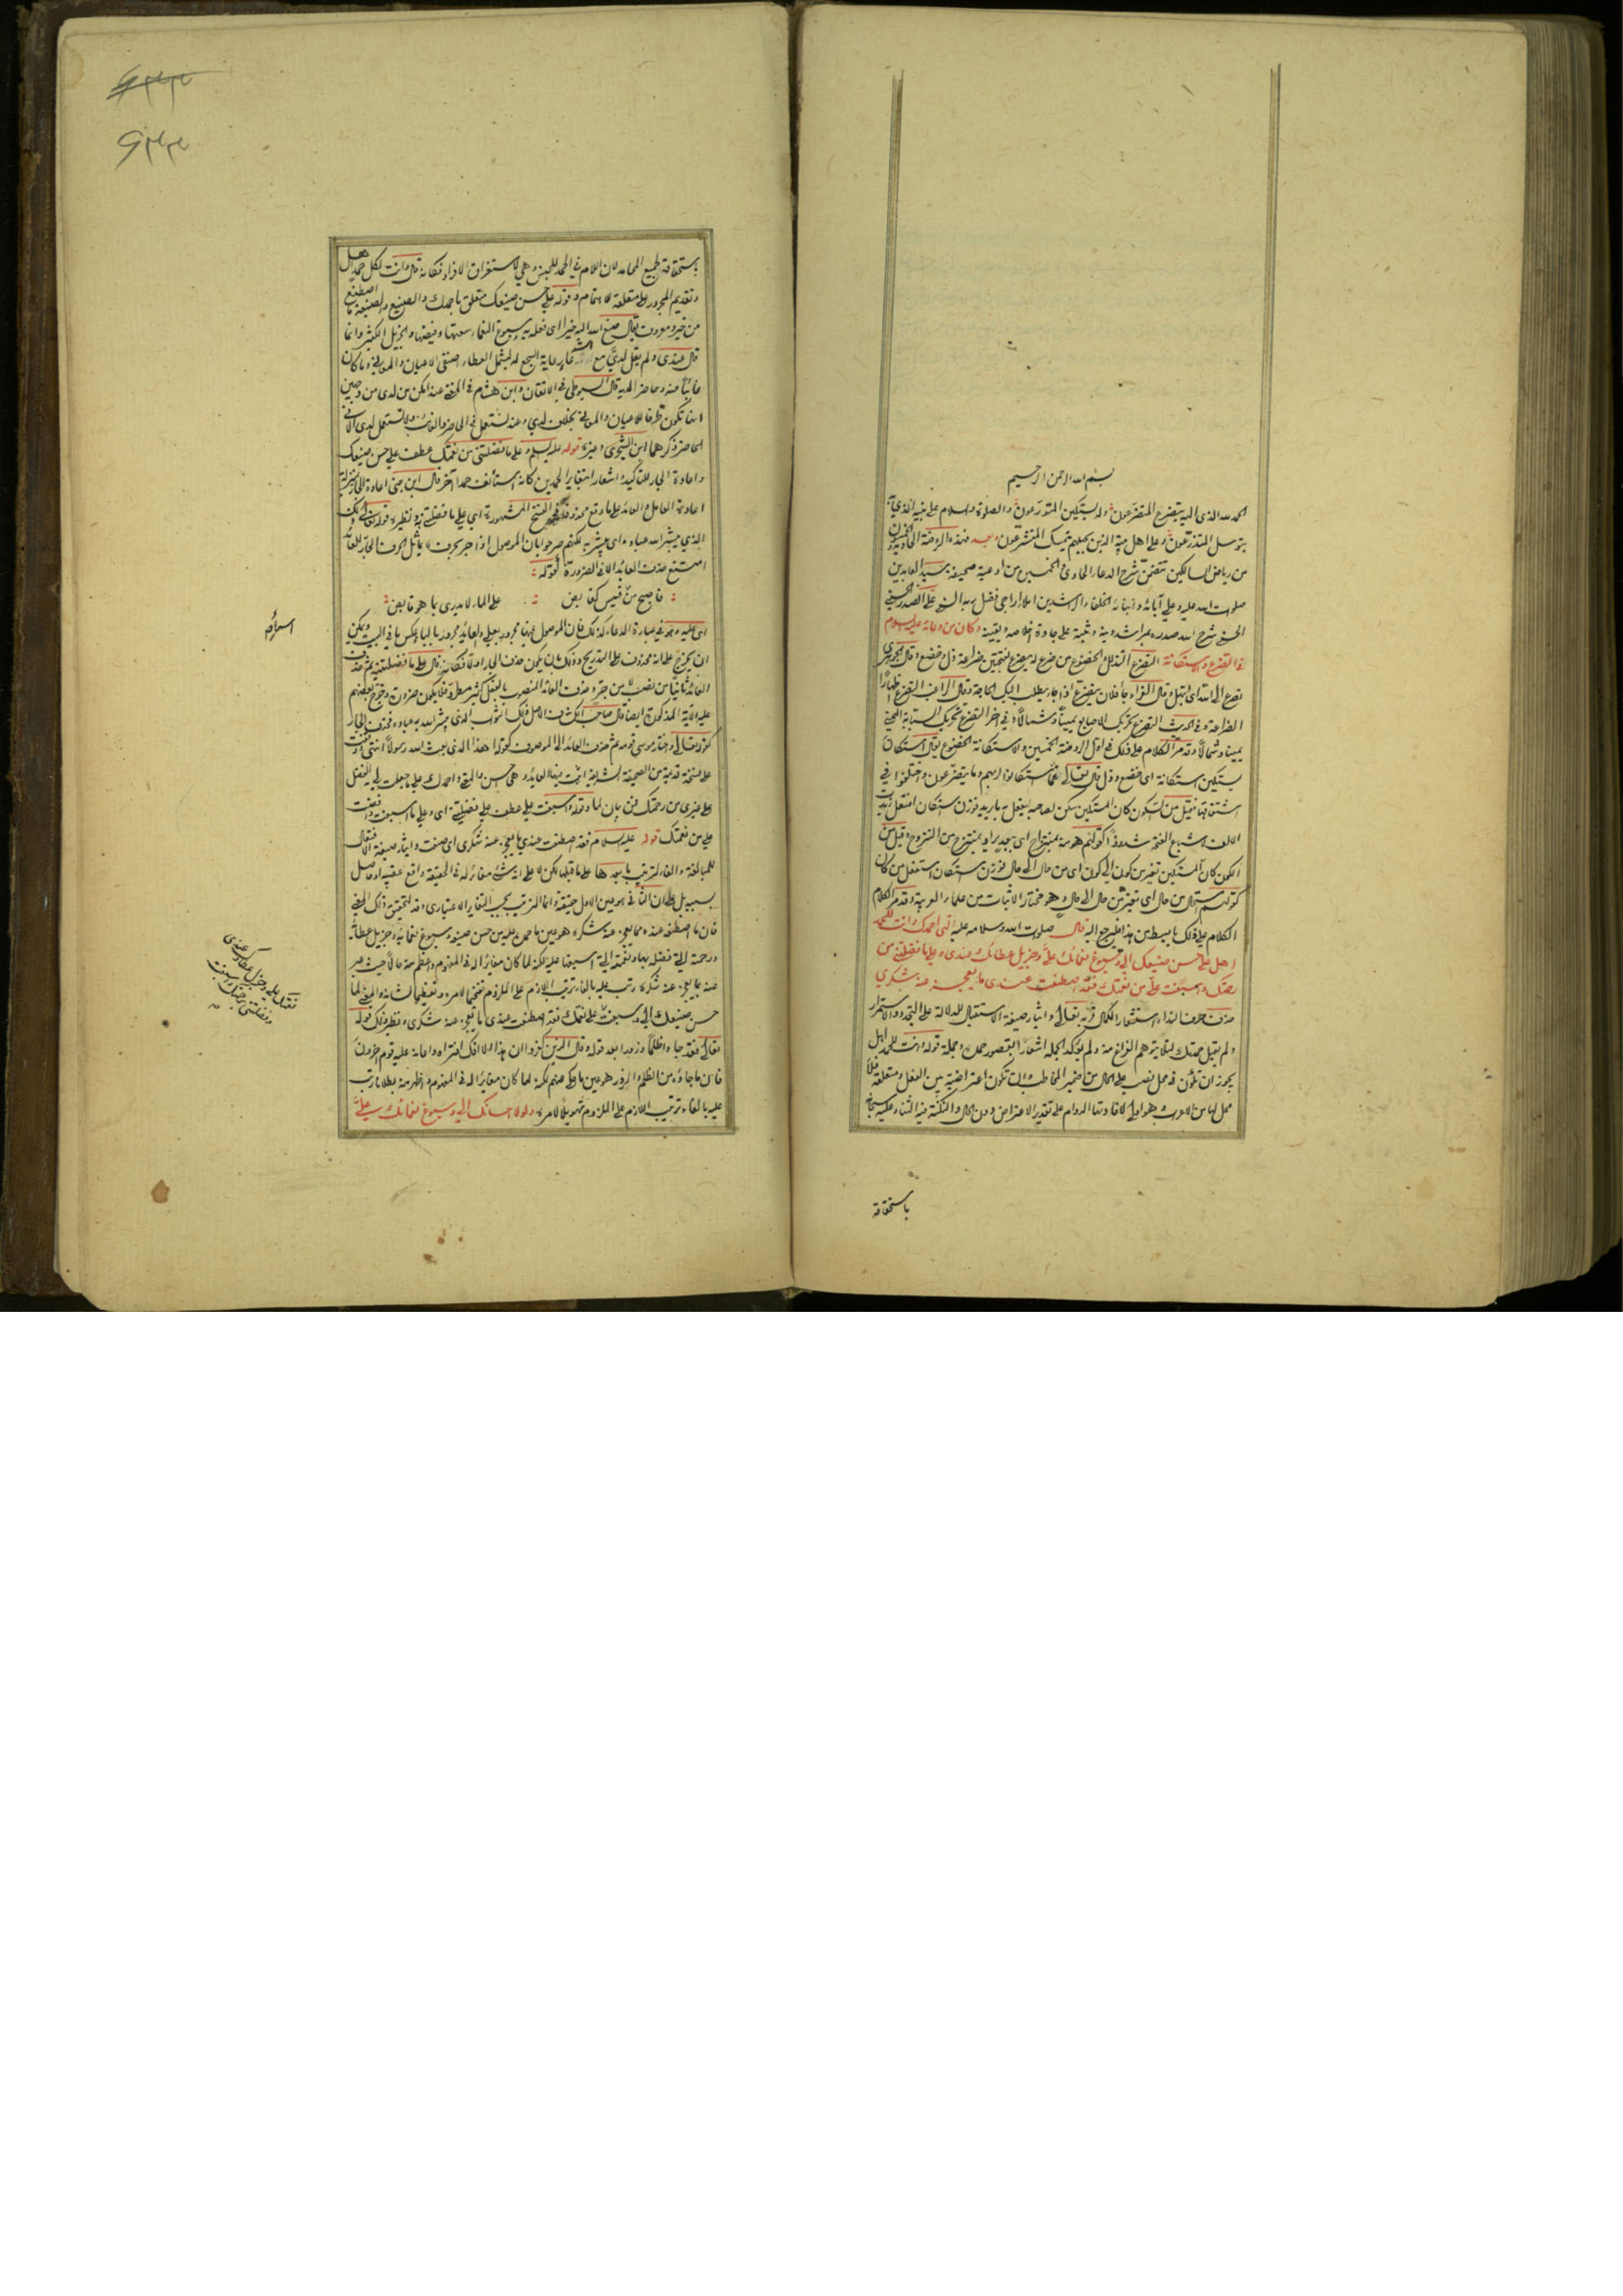 بسم الله الرحمن الرحيم
الحمد لله الذي اليه يتضرع المتضرعون وله يستكين المتورعون والصلوة والسلام على نبيه الذي به
يتوسل المتذرعون وعلى اهل بيته الذين بحبلهم يتمسك المتشرعون وبعد فهذه الروضة الحادية والخمسون
من رياض السالكين تتضمن شرح الدعاء الحادي والخمسين من ادعية صحيفة سيد العابدين
صلوات الله عليه وعلى آبائه وابنائه الخلفاء الراشدين املاء راجي فضل ربه السني علي الصدر الحسيني
الحسني شرح الله صدره لمراشد دينه وثبته على جادة اخلاصه ويقينه وكان من دعائه عليه السلام
في التضرع والاستكانة التضرع التذلل والخضوع من ضرع له يضرع بفتحتين ضراعة ذل وخضع وقال الجوهري
تضرع الى الله اي ابتهل قال الفراء جاء فلان يتضرع اذا جاء يطلب اليك الحاجة وقال الراغب التضرع اظهار
الضراعة وفي الحديث التضرع تحريك الاصابع يمينا وشمالا وفي اخر التضرع تحريك السبابة اليمنى
يمينا وشمالا وقد مر الكلام على ذلك في اول الروضة الخمسين والاستكانة الخضوع يقال استكان
يستكين استكانة اي خضع وذل قال تعالى فما استكانوا لربهم وما يتضرعون واختلفوا في
اشتقاقها فقيل من السكون كان المستكين سكن لصاحبه ليفعل به ما يريد فوزن استكان افتعل زيدت
الالف اشباع الفتحة شذوذا كقولهم هو منه بمنتزاح اي ببعد يراد بمنتزح من النزوح وقيل من
الكون كان المستكين تغير من كون الى كون اي من حال الى حال فوزن استكان استفعل من كان
كقولهم استحال من حال اي تغير من حال الى حال وهو مختار الاثبات من علماء العربية وقد مر الكلام
الكلام على ذلك بابسط من هذا فليرجع اليه قال صلوات الله وسلامه عليه الهي احمدك وانت للحمد
اهل على حسن صنيعك الي وسبوغ نعمائك علي وجزيل عطائك عندي وعلى ما فضلتني من
رحمتك واسبغت علي من نعمتك فقد اصطنعت عندي ما يعجز عنه شكري
حذف حرف النداء استشعار الكمال قربه تعالى وايثار صيغة الاستقبال للدلالة على التجدد والاستمرار
ولم يقل حمدتك لئلا يتوهم الفراغ منه ولم يؤكد الجملة اشعارا بقصور حمده وجملة قوله وانت للحمد اهل
يجوز ان تكون في محل نصب على الحال من ضمير المخاطب وان تكون اعتراضية بين الفعل ومتعلقه فلا
محل لها من الاعراب وهو اولى لافادتها الدوام على تقدير الاعتراض دون الحال والنكتة فيه الثناء عليه سبحانه
باستحقاقه
باستحقاقه لجميع المحامد لان اللام في الحمد للجنس وهي لاستغراق الافراد فكانه قال وانت لكل حمد اهل
وتقديم المجرور على متعلقه للاهتمام وقوله على حسن صنيعك متعلق باحمدك والصنيع والصنيعة ما اصطنع
من خير ومعروف يقال صنع الله اليه خيرا اي فعله به وسبوغ النعماء سعتها وفيضها والجزيل الكثير وانما
قال عندي ولم يقل لدي مع رعاية السجع له ليشمل العطاء صنفي الاعيان والمعاني وما كان
غائبا منه وحاضرا لديه قال السيوطي في الاتقان وابن هشام في المغني عند امكن من لدى من وجهين
انها تكون ظرفا للاعيان والمعاني بخلاف لدى وعند تستعمل في الحاضر والغائب ولا تستعمل لدى الا في
الحاضر ذكرهما ابن الشجري وغيره قوله عليه السلام وعلى ما فضلتني من نعمتك عطف على حسن صنيعك
واعادة الجار للتاكيد واشعار بتغاير الحمدين كانه استأنف حمدا آخر قال ابن جني اعادة الجار بمنزلة
اعادة العامل والعائد على ما وقع محذوفا في النسخ المشهورة اي على ما فضلتني به ونظيره قوله تعالى ذلك
الذي يبشر الله عباده اي يبشر به لكنهم صرحوا بان الموصول اذا جر بحرف لا يماثل الحرف الجار للعائد
امتنع حذف العائد الا في الضرورة كقوله
فاصبح من قيس كقابض على الماء لا يدري بما هو قابض
اي عليه وهو في عبارة الدعاء كذلك فان الموصول فيها مجرور بعلى والعائد مجرور بالباء عكس ما في البيت ويمكن
ان يخرج على انه محذوف على التدريج وذلك بان يكون حذف الجار اولا فكانه قال على ما فضلتنيه ثم حذف
العائد ثانيا من نصب لا من جر وحذف العائد المنصوب بالفعل كثير مطرد فلا يكون ضرورة وخرج بعضهم
عليه الآية المذكورة ايضا قال صاحب الكشاف الاصل ذلك الثواب الذي يبشر الله به عباده فحذف الجار
كقوله تعالى واختار موسى قومه ثم حذف العائد الى الموصوف كقوله اهذا الذي بعث الله رسولا انتهى ووقفت
على نسخة قديمة من الصحيفة الشريفة اثبت فيها العائد وهي احسن واحمدك على ما جعلت لي الفضل
على غيري من رحمتك فمن بيان لما وقوله واسبغت علي عطف على فضلتني اي وعلى ما اسبغت وافضت
علي من نعمتك قوله عليه السلام فقد اصطنعت عندي ما يعجز عنه شكري اي صنعت وايثار صيغة الافتعال
للمبالغة والفاء لترتيب ما بعدها على ما قبلها لكن لا على انه شيء مغاير له في الحقيقة واقع عقيبه او حاصل
بسببه بل على ان الثاني هو عين الاول حقيقة وانما الترتيب بحسب التغاير الاعتباري وقد لتحقيق ذلك المعنى
فان ما اصطنعه عنده مما يعجز عنه شكره هو عين ما حمده عليه من حسن صنيعه وسبوغ نعمائه وجزيل عطائه
ورحمته التي فضله بها ونعمته التي اسبغها عليه لكنه لما كان مغايرا له في المفهوم واعظم منه حالا حيث عبر
عنه بما يعجز عنه شكره رتب عليه بالفاء ترتيب اللازم على الملزوم تفخيما لامره وتعظيما لشانه والمعنى لما
حسن صنيعك الي وسبغت علي نعمتك فقد اصطنعت عندي ما يعجز عنه شكري ونظير ذلك قوله
تعالى فقد جاءوا ظلما وزورا بعد قوله وقال الذين كفروا ان هذا الا افك افتراه واعانه عليه قوم آخرون
فان ما جاءوه من الظلم والزور هو عين ما حكي عنهم لكنه لما كان مغايرا له في المفهوم واظهر منه بطلانا رتب
عليه بالفاء ترتيب اللازم على الملزوم تهويلا لامره ولولا احسانك الي وسبوغ نعمائك علي